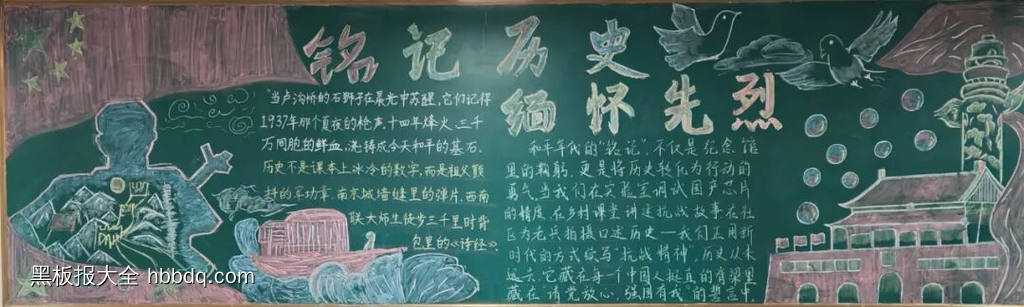 铭记历史
缅怀先烈
"当卢沟桥的石狮子在晨光中苏醒,它们记得
1937年那个夏夜的枪声.十四年烽火,三千
万同胞的鲜血,浇铸成今天和平的基石.
历史不是课本上冰冷的数字,而是祖父颤
抖的军功章.南京城墙缝里的弹片.西南
联大师生徒步三千里时背
包里的《诗经》
和平年代的"铭记",不仅是纪念馆
里的鞠躬,更是将历史转化为行动的
勇气.当我们在实验室调试国产芯片
的精度.在乡村课堂讲述抗战故事.在社
区为老兵拍摄口述历史—我们正用新
时代的方式续写"抗战精神".历史从未
远去.它藏在每一个中国人挺直的脊梁里
藏在"请党放心,强国有我"的誓言中
黑板报大全 hbbdq.com